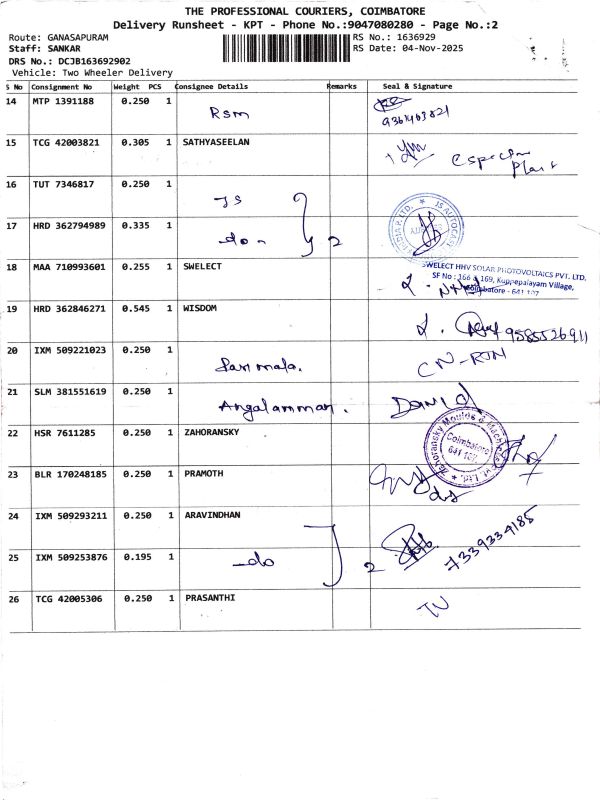 THE PROFESSIONAL COURIERS, COIMBATORE
Delivery Runsheet - KPT - Phone No.:9047080280 - Page No.:2
Route: GANASAPURAM
RS No.: 1636929
Staff: SANKAR
RS Date: 04-Nov-2025
DRS No.: DCJB163692902
Vehicle: Two Wheeler Delivery
S No Consignment No Weight PCS Consignee Details Remarks Seal & Signature
14 MTP 1391188 0.250 1 Rsm
15 TCG 42003821 0.305 1 SATHYASEELAN
16 TUT 7346817 0.250 1 JS
17 HRD 362794989 0.335 1 -do- 2
JS AUTOCAST
18 MAA 710993601 0.255 1 SWELECT
SWELECT HHV SOLAR PHOTOVOLTAICS PVT. LTD.
SF No : 166 & 169, Kuppepalayam Village,
Coimbatore - 641 107
19 HRD 362846271 0.545 1 WISDOM 9585526911
20 IXM 509221023 0.250 1 Parimala. CN-RTN
21 SLM 381551619 0.250 1 Angalamman. DANID
22 HSR 7611285 0.250 1 ZAHORANSKY
Zahoransky Moulds & Machines Pvt Ltd.
Coimbatore
641 107
23 BLR 170248185 0.250 1 PRAMOTH
24 IXM 509293211 0.250 1 ARAVINDHAN
25 IXM 509253876 0.195 1 -do 2 7339334185
26 TCG 42005306 0.250 1 PRASANTHI